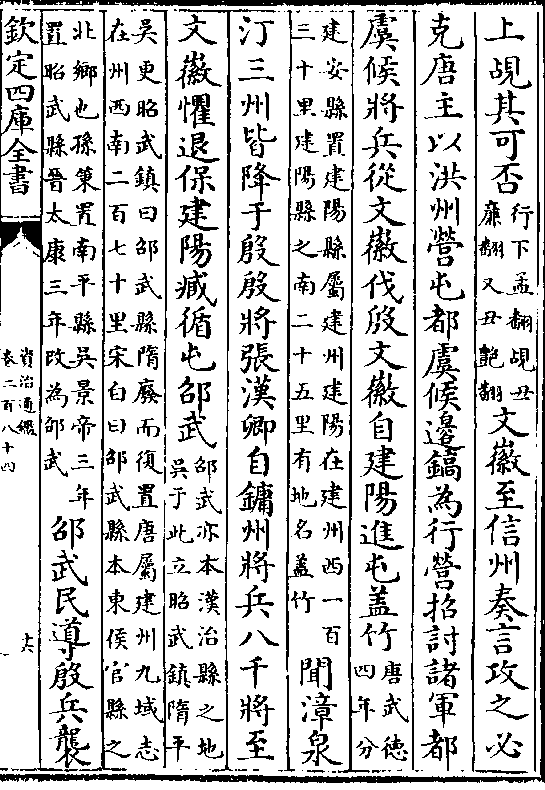 上覘其可否行下孟翻覘丑廉翻又丑艶翻文徽至信州奏言攻之必
克唐主以洪州營屯都虞候邊鎬為行營招討諸軍都
虞候將兵從文徽伐殷文徽自建陽進屯盖竹唐武徳四年分
建安縣置建陽縣屬建州建陽在建州西一百三十里建陽縣之南二十五里有地名盖竹聞漳泉
汀三州皆降于殷殷將張漢卿自鏞州將兵八千將至
文徽懼退保建陽臧循屯邵武邵武亦本漢治縣之地吳于此立昭武鎮隋平
吳更昭武鎮曰邵武縣隋廢而復置唐屬建州九域志在州西南二百七十里宋白曰邵武縣本東侯官縣之
北鄉也孫策置南平縣吳景帝三年置昭武縣晉太康三年改為邵武邵武民導殷兵襲
欽定四庫全書
資治通鑑
卷二百八十四
十六